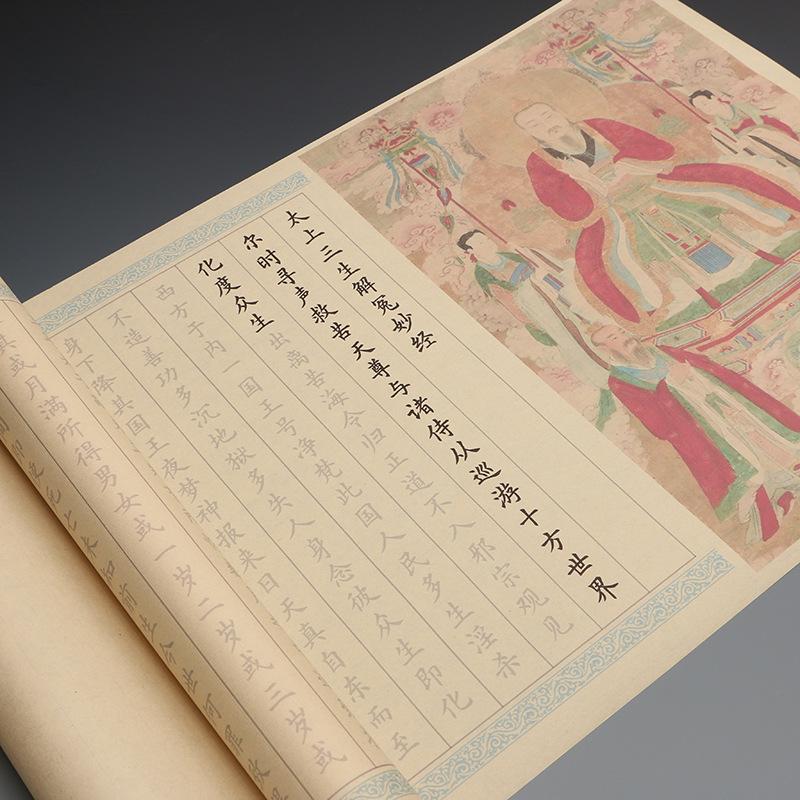 太上三生解冤妙经
尔时寻声救苦天尊与诸侍从巡游十方世界
化度众生出离苦海令归正道不入邪宗观见
西方于内一国王号净梵此国人民多生淫杀
不造善功多沉地獄多失人身念彼众生即化
身下降其国王夜梦神报来日天真自东而至
其或月满所得男女或一岁二岁或三岁或
未知前生今世何罪